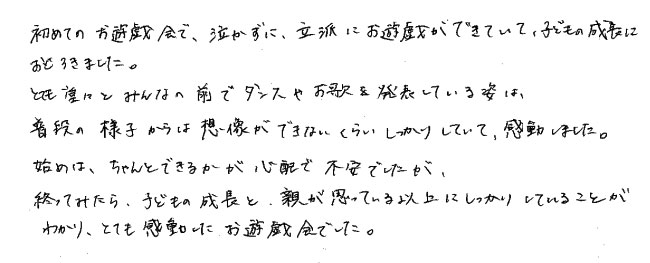 初めてのお遊戯会で、泣かずに、立派にお遊戯ができていて、子どもの成長に
おどろきました。
とても堂々とみんなの前でダンスやお歌を発表している姿は、
普段の様子からは想像ができないくらいしっかりしていて、感動しました。
始めは、ちゃんとできるかが心配で不安でしたが、
終ってみたら、子どもの成長と、親が思っている以上にしっかりしていることが
わかり、とても感動したお遊戯会でした。